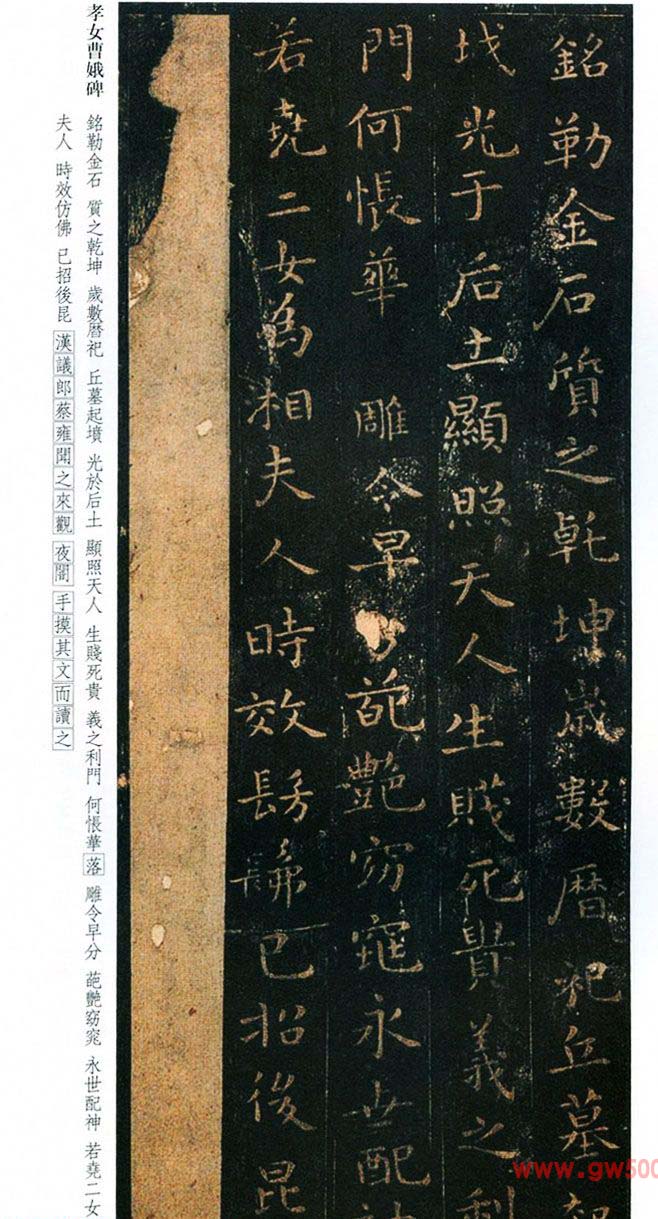 銘勒金石質之乹坤歲數曆祀丘墓
坟光于后土顯照天人生賤死貴義之利
門何悵華 雕令早分葩艷窈窕永世配
若堯二女為相夫人時效髣髴已招後昆
孝女曹娥碑
銘勒金石 質之乾坤 歲數曆祀 丘墓起墳 光於后土 顯照天人 生賤死貴 義之利門 何悵華落 雕令早分 葩艷窈窕 永世配神 若堯二女
夫人 時效仿佛 已招後昆 漢議郎蔡雍聞之來觀 夜闇 手摸其文而讀之
www.gw500